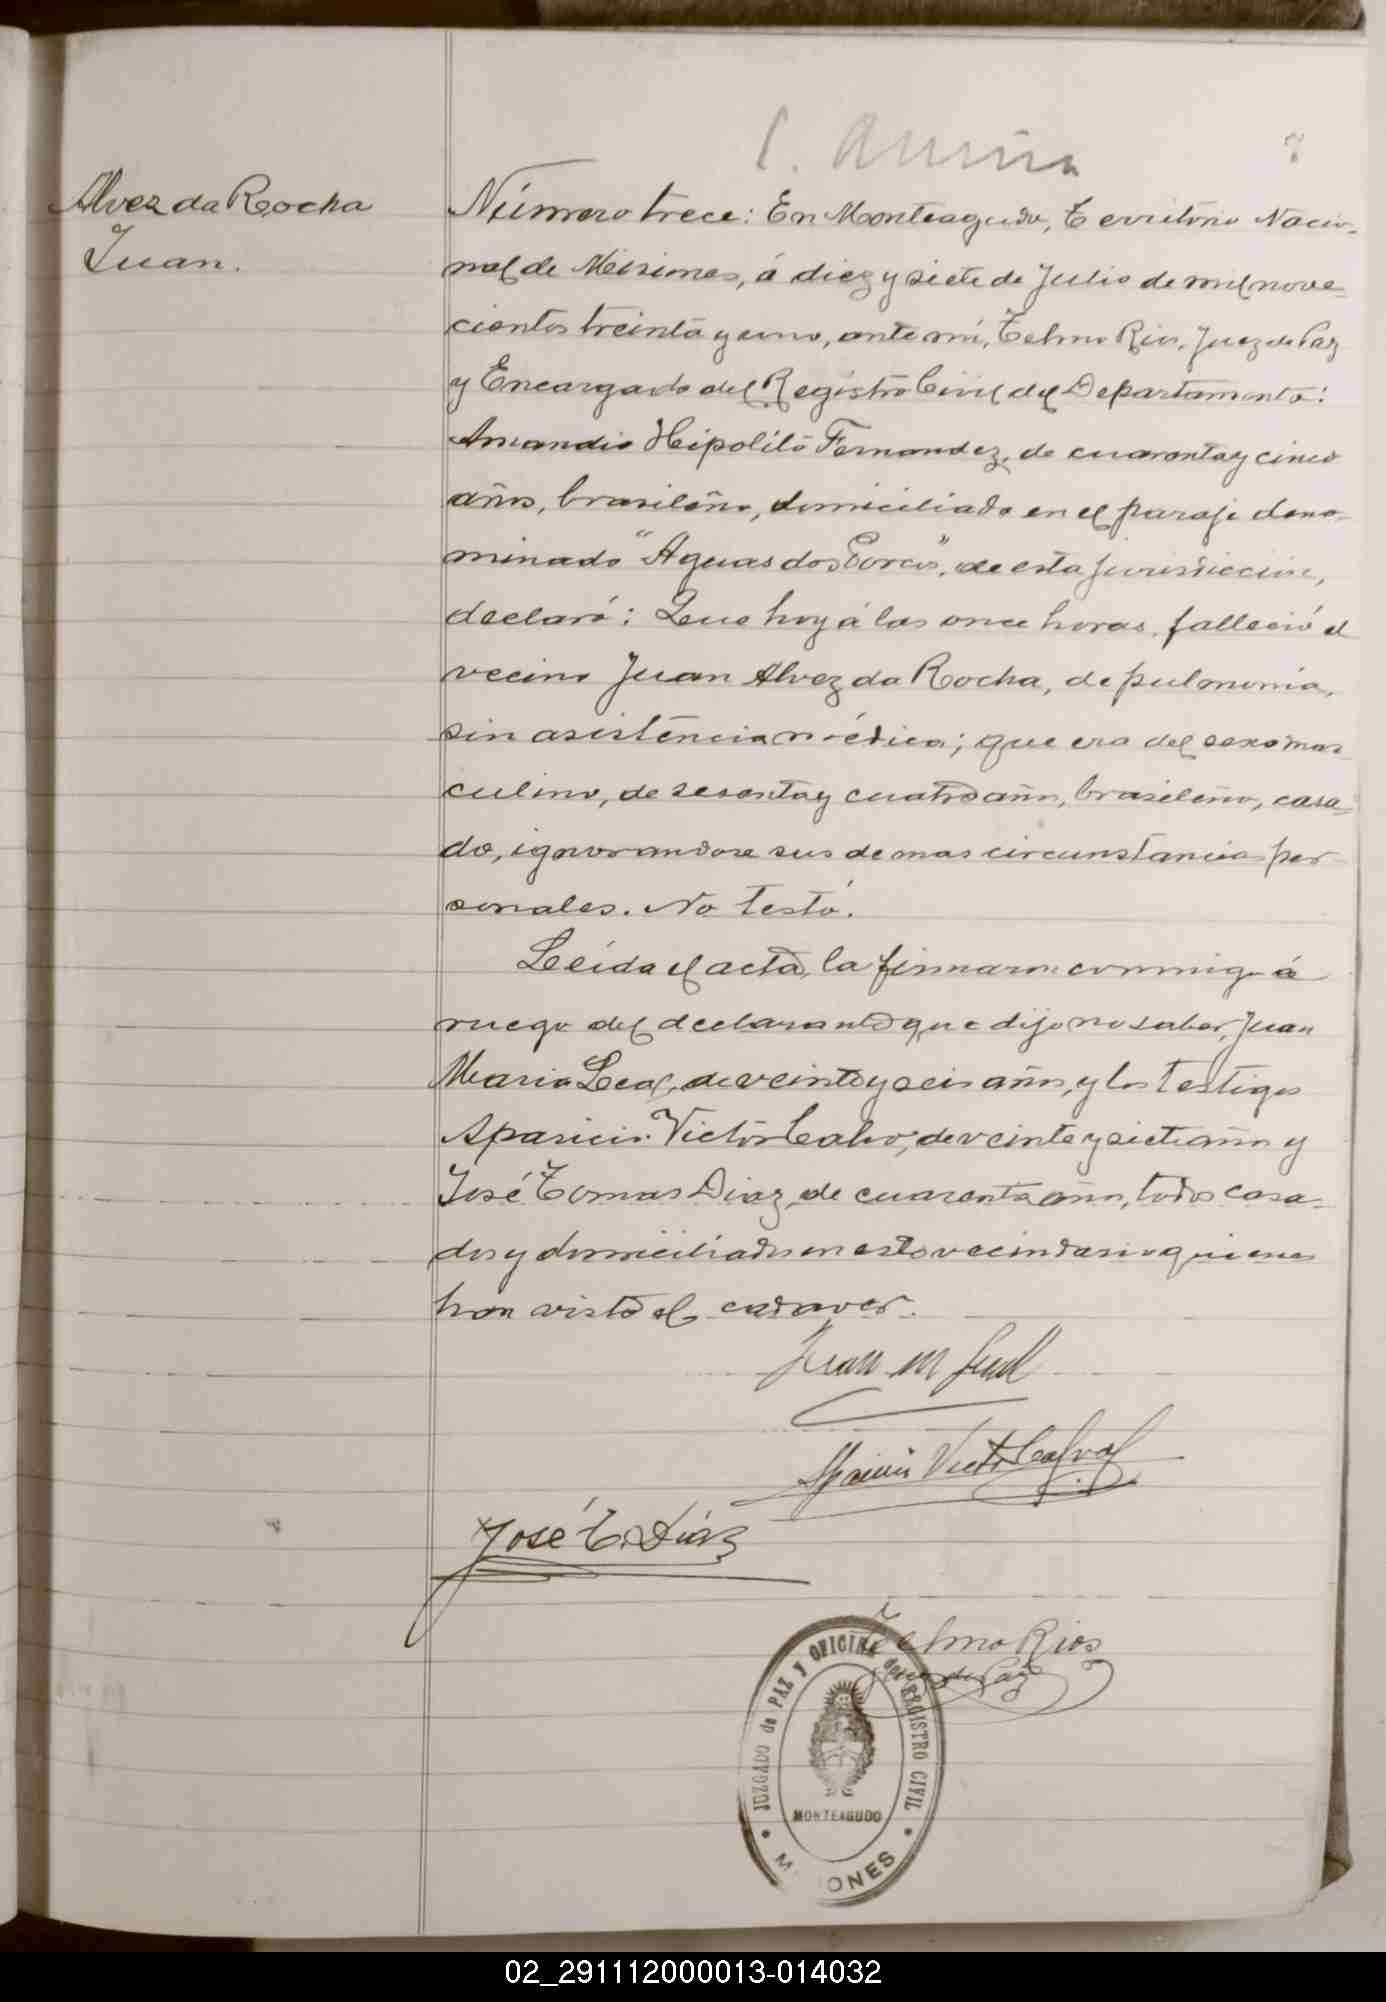 Alvez da Rocha
Juan.
Número trece: En Monteagudo, Territorio Nacio-
nal de Misiones, á diez y siete de Julio de mil nove-
cientos treinta y uno, ante mí, Telmo Rios, Juez de Paz
y Encargado del Registro Civil del Departamento:
Amandio Hipolito Fernandez, de cuarenta y cinco
años, brasileño, domiciliado en el paraje deno-
minado "Aguas dos Porcos", de esta jurisdicción,
declaró: Que hoy á las once horas, falleció el
vecino Juan Alvez da Rocha, de pulmonia,
sin asistencia médica; que era del sexo mas-
culino, de sesenta y cuatro años, brasileño, casa-
do, ignorandose sus demas circunstancias per-
sonales. No testó.
Leída el acta, la firmaron conmigo á
ruego del declarante que dijo no saber, Juan
Maria Leal, de veinte y seis años, y los testigos
Aparicio Victor Calvo, de veinte y siete años y
José Tomas Diaz, de cuarenta años, todos casa-
dos y domiciliados en este vecindario quienes
han visto el cadaver.
Juan M Leal
Aparicio Victor Calvo
José T. Díaz
Telmo Rios
Juez de Paz
JUZGADO de PAZ y OFICINA del REGISTRO CIVIL
MONTEAGUDO
M ONES
02_291112000013-014032